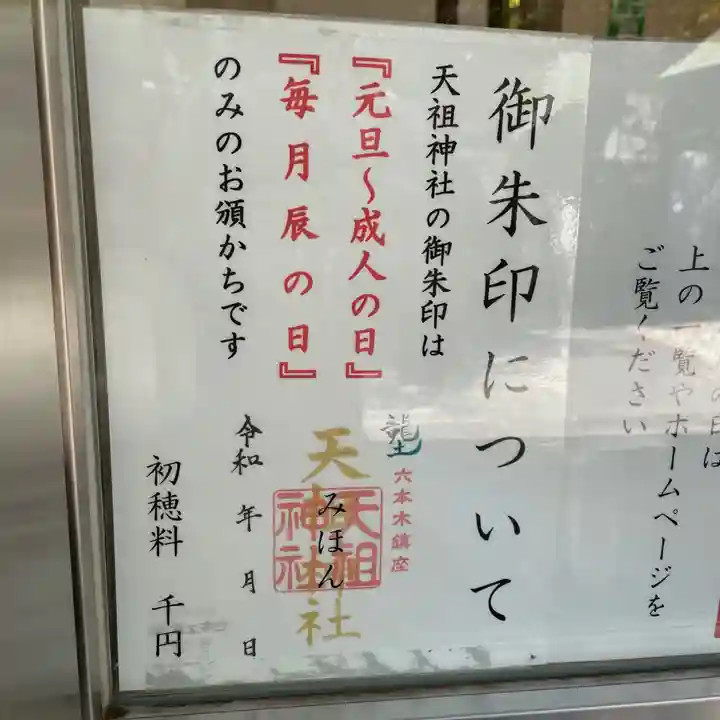 の日は
上の一覧やホームページを
ご覧ください
御朱印について
天祖神社の御朱印は
『元旦～成人の日』
『毎月辰の日』
のみのお頒かちです
六本木鎮座
天祖神社
天祖神社
みほん
令和 年 月 日
初穂料 千円